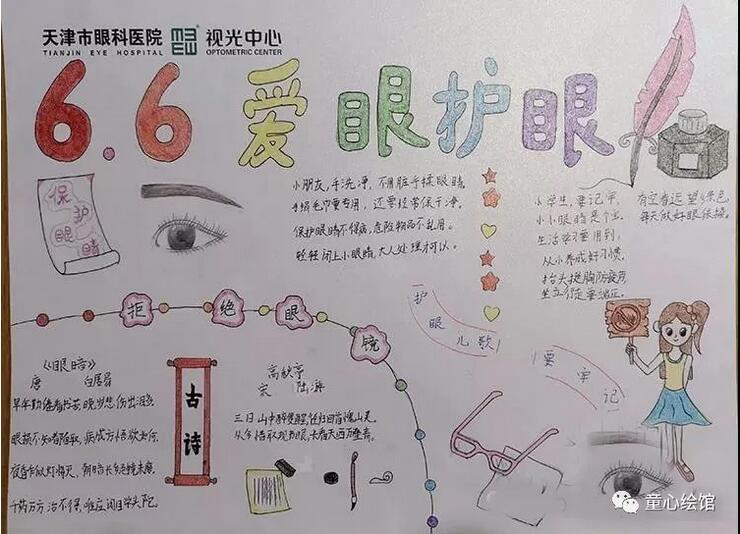 天津市眼科医院 视光中心
TIANJIN EYE HOSPITAL OPTOMETRIC CENTER
6.6爱眼护眼
保护眼睛
小朋友,手洗净,不用脏手揉眼睛,
手绢毛巾要专用,还要经常保干净,
保护眼睛不得病,危险物品不乱用。
轻轻闭上小眼睛,大人处理才可以。
护眼儿歌
小学生,要记牢,
小小眼睛是个宝,
生活学习要用到,
从小养成好习惯,
抬头挺胸防疲劳,
坐立行走要端正。
有空看远望绿色,
每天做好眼保操。
要牢记
拒绝眼镜
《眼暗》
唐 白居易
早年勤倦看书苦,晚岁悲伤出泪多
眼损不知都自取,病成方悟欲如何
夜昏乍似灯将灭,朝暗长疑镜未磨
千药万方治不得,唯应闭目学头陀。
古诗
高秋亭
宋 陆游
三日山中醉复醒,径归回首愧山灵。
从今惜取观书眼,长看天西万叠青。
童心绘馆